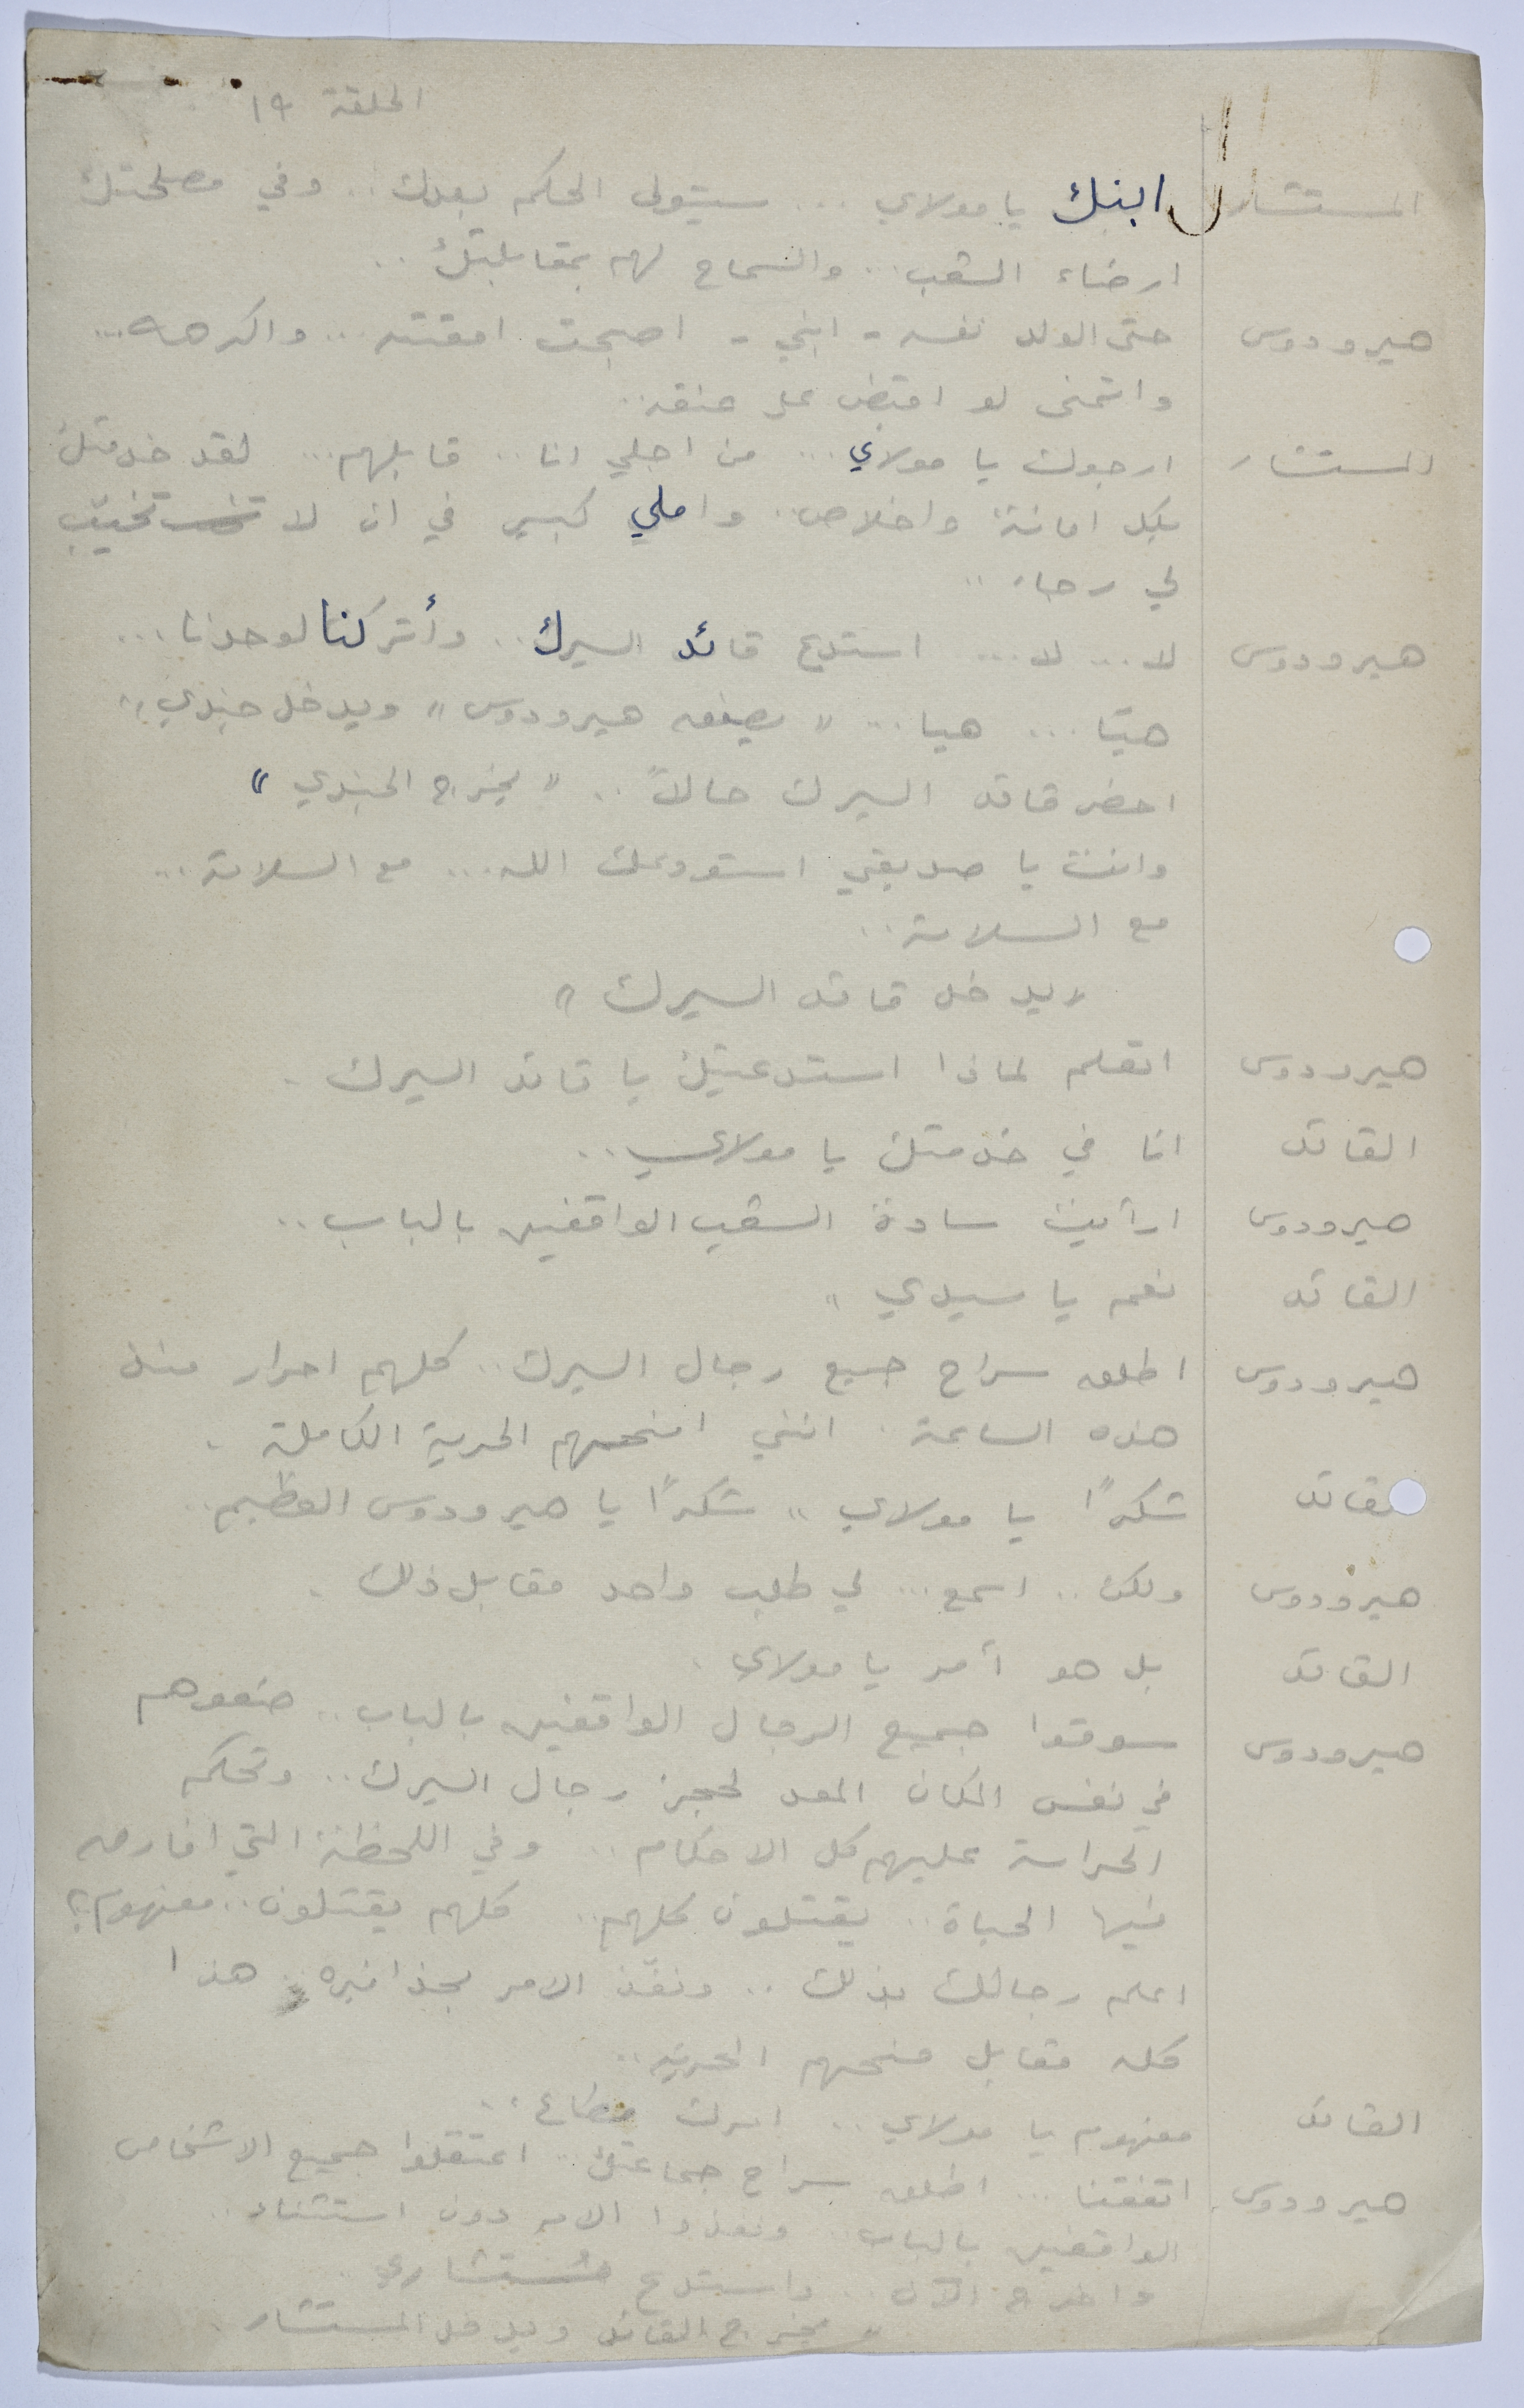 الحلقة ١٩
المستشار ابنك يا مولاي ... سيتولى الحكم بعدك .. وفي مصلحتك
ارضاء الشعب .. والسماح لهم بمقابلتك ..
هيرودوس حتى الولد نفسه - ابني - اصبحت امقته ... واكرهه ...
واتمنى لو اقبض على عنقه ..
المستشار ارجوك يا مولاي ... من اجلي انا .. قابلهم ... لقد خدمتك
بكل امانة واخلاص .. واملي كبير في ان لا تخيّب
لي رجاء ..
هيرودوس لا ... لا ... استدع قائد السيرك .. وأتركنا لوحدنا ...
هيّا ... هيا ... " يصفق هيرودوس " ويدخل جندي "
احضر قائد السيرك حالاً .. " يخرج الجندي "
وانت يا صديقي استودعك الله ... مع السلامة ...
مع السلامة ..
" يدخل قائد السيرك "
هيرودوس اتعلم لماذا استدعيتك يا قائد السيرك .
القائد انا في خدمتك يا مولاي ..
هيرودوس ارأيت سادة الشعب الواقفين بالباب ..
القائد نعم يا سيدي ..
هيرودوس اطلق سراح جميع رجال السيرك .. كلهم احرار منذ
هذه الساعة . انني امنحهم الحرية الكاملة .
القائد شكرًا يا مولاي .. شكرًا يا هيرودوس العظيم ..
هيرودوس ولكن .. اسمع ... لي طلب واحد مقابل ذلك .
القائد بل هو أمر يا مولاي .
هيرودوس سوقوا جميع الرجال الواقفين بالباب .. ضعوهم
في نفس المكان المعد لحجز رجال السيرك .. وتحكم
الحراسة عليهم كل الاحكام .. وفي اللحظة التي افارق
فيها الحياة .. يقتلون كلهم .. كلهم يقتلون .. مفهوم ؟
اعلم رجالك بذلك .. ونفّذ الامر بحذافيره .. هذا
كله مقابل منحهم الحرية ..
القائد مفهوم يا مولاي .. امرك مطاع ..
هيرودوس اتفقنا ... اطلق سراح جماعتك .. اعتقلوا جميع الاشخاص
الواقفين بالباب .. ونفذوا الامر دون استثناء ..
واخرج الآن .. واستدع مُستشاري ..
" يخرج القائد ويدخل المستشار .